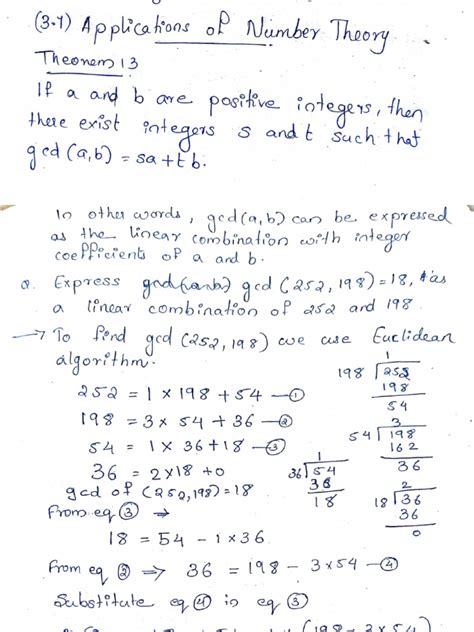 (3.4) Applications of Number Theory
Theorem 13
If a and b are positive integers, then
there exist integers s and t such that
gcd (a,b) = sa + t b.
In other words, gcd(a,b) can be expressed
as the linear combination with integer
coefficients of a and b.
Q. Express gcd (252, 198) = 18, as
a linear combination of 252 and 198.
→ To find gcd (252, 198) we use Euclidean
algorithm.
252 = 1 × 198 + 54 — ①
198 = 3 × 54 + 36 — ②
54 = 1 × 36 + 18 — ③
36 = 2 × 18 + 0
gcd of (252, 198) = 18
1
198 253
198
54
3
54 198
162
36
1
36 54
36
18
2
18 36
36
0
From eq ③ →
18 = 54 - 1 × 36
From eq ② ⇒ 36 = 198 - 3 × 54 — ④
Substitute eq ④ in eq ③
(198 - 3 × 54)